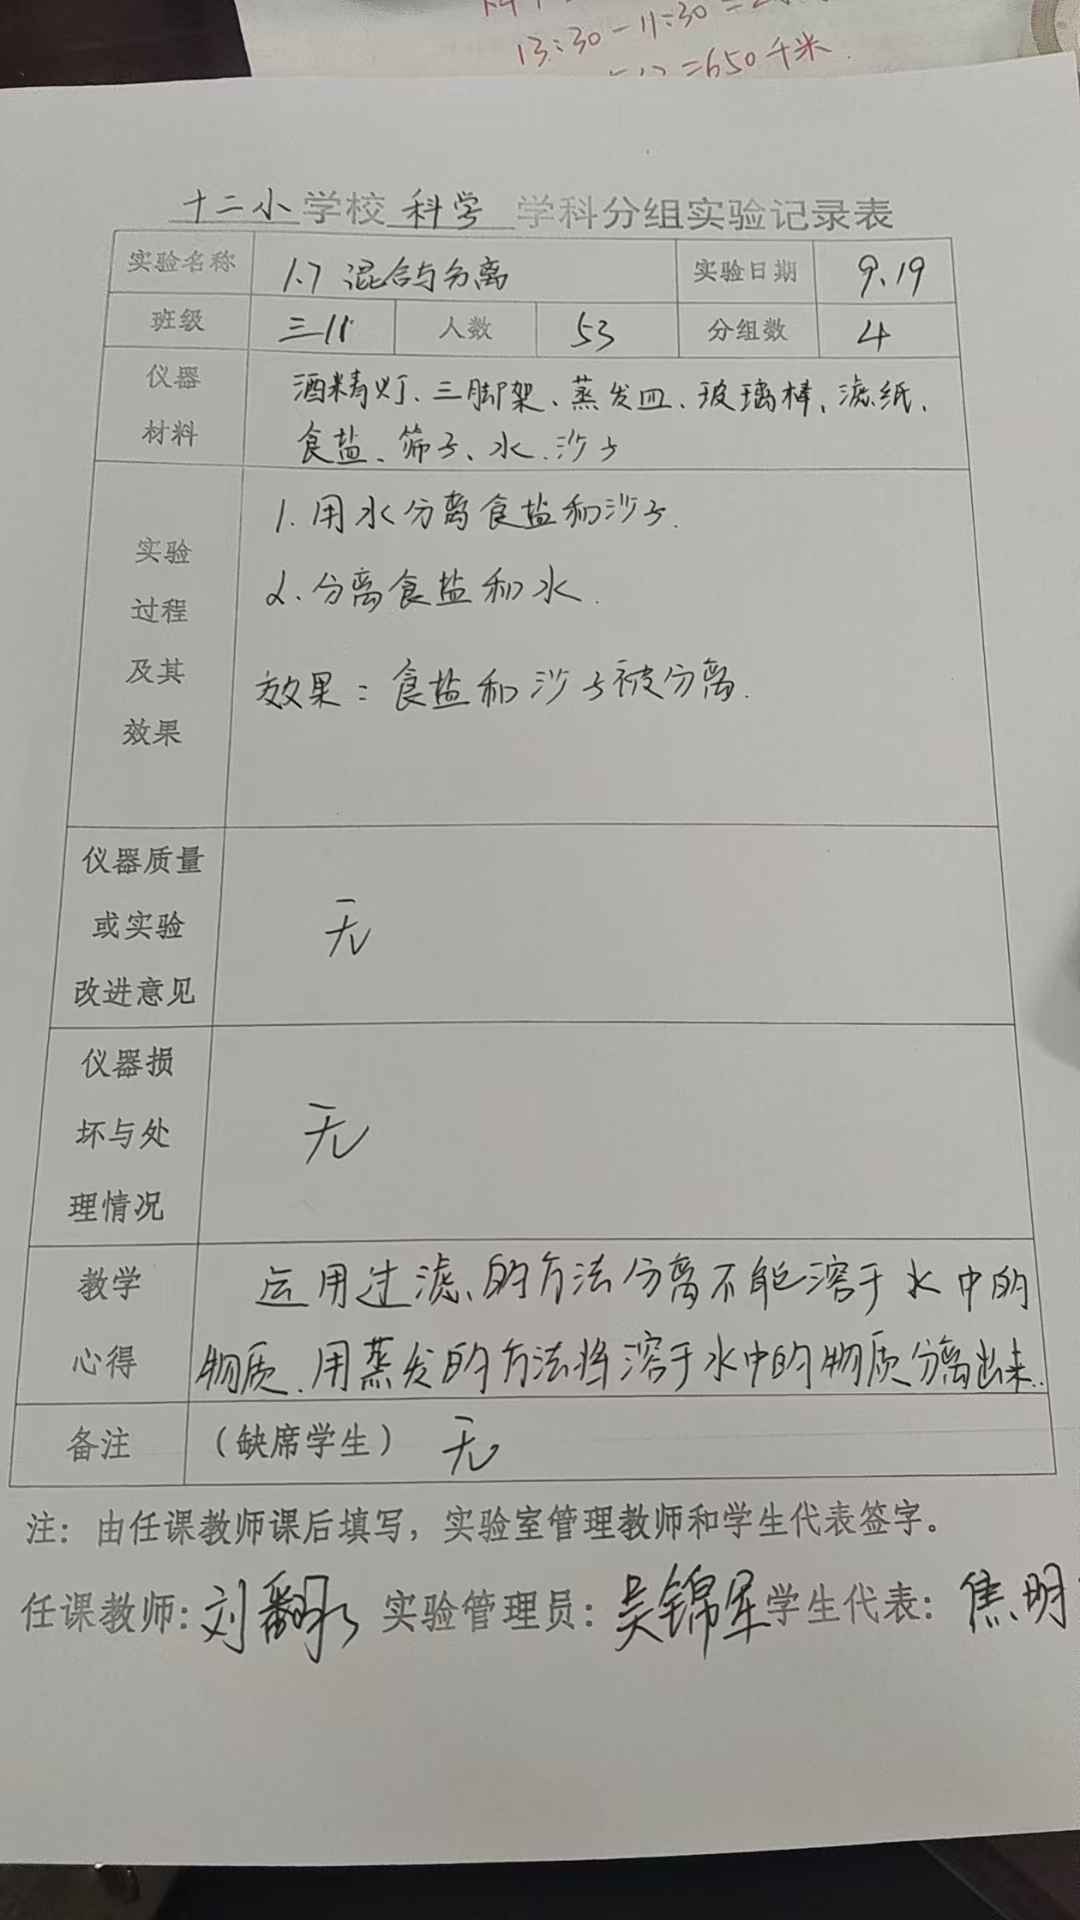 13:30-11:30=2
=650千米
十二小学校科学 学科分组实验记录表
实验名称 1.7 混合与分离 实验日期 9.19
班级 三11 人数 53 分组数 4
仪器 酒精灯、三脚架、蒸发皿、玻璃棒、滤纸、
材料 食盐、筛子、水、沙子
1. 用水分离食盐和沙子.
实验
2. 分离食盐和水.
过程
及其
效果：食盐和沙子被分离.
效果
仪器质量
或实验 无
改进意见
仪器损
坏与处 无
理情况
教学 运用过滤的方法分离不能溶于水中的
心得 物质、用蒸发的方法将溶于水中的物质分离出来.
备注 （缺席学生） 无
注：由任课教师课后填写，实验室管理教师和学生代表签字。
任课教师：刘 实验管理员：吴锦军 学生代表：焦明